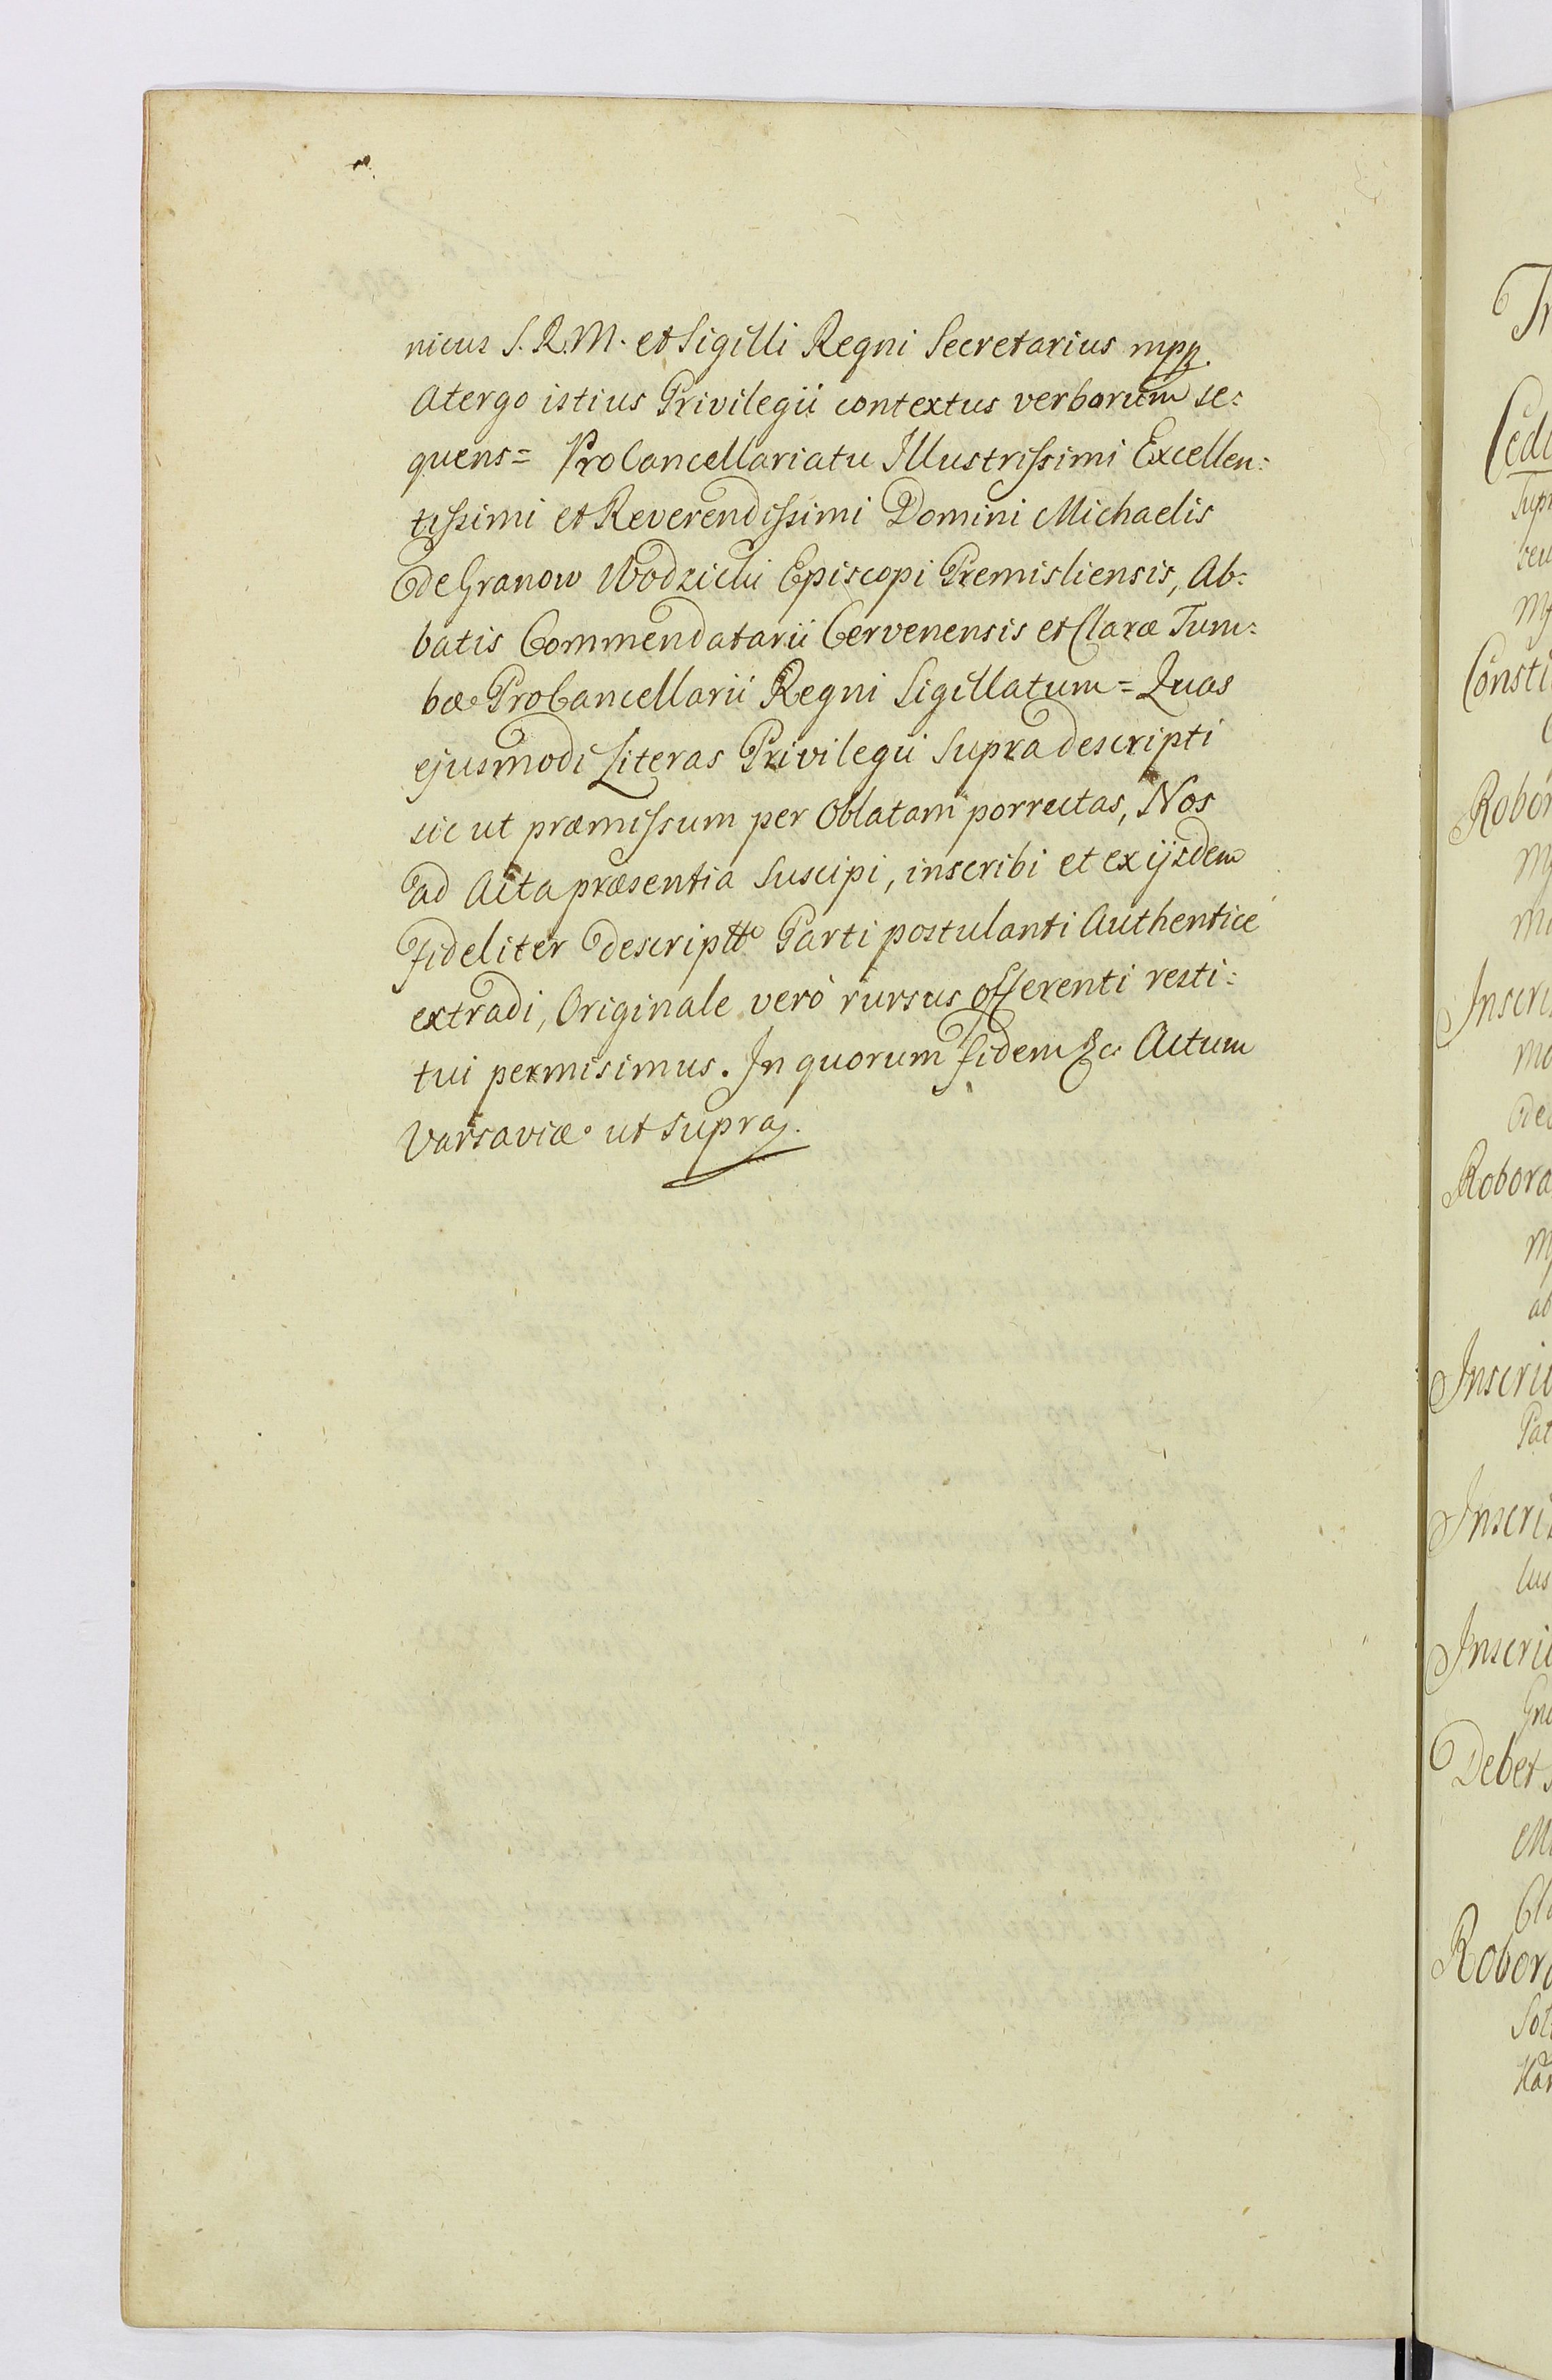 nicus S.R.M. et Sigilli Regni Secretarius mpp.
Atergo istius Privilegii contextus verborum se:
quens= ProCancellariatu Illustrissimi Excellen:
tissimi et Reverendissimi Domini Michaelis
de Granow Wodzicki Episcopi Premisliensis, Ab:
batis Commendatarii Cervenensis et Claræ Tum:
bæ ProCancellarii Regni Sigillatum= Quas
ejusmodi Literas Privilegii Supradescripti
sic ut præmissum per Oblatam porrectas, Nos
ad Acta præsentia Suscipi, inscribi et ex ijsdem
fideliter descriptte Parti postulanti Authenticé
extradi, Originale veró rursus offerenti resti:
tui permisimus. In quorum fidem &c Actum
Varsaviæ ut supra.
Cedi
Supr
Consti
Robor
Inscri
Robora
ab
Inscrip
Pat
Inscri
Inscri
Debet
Robora